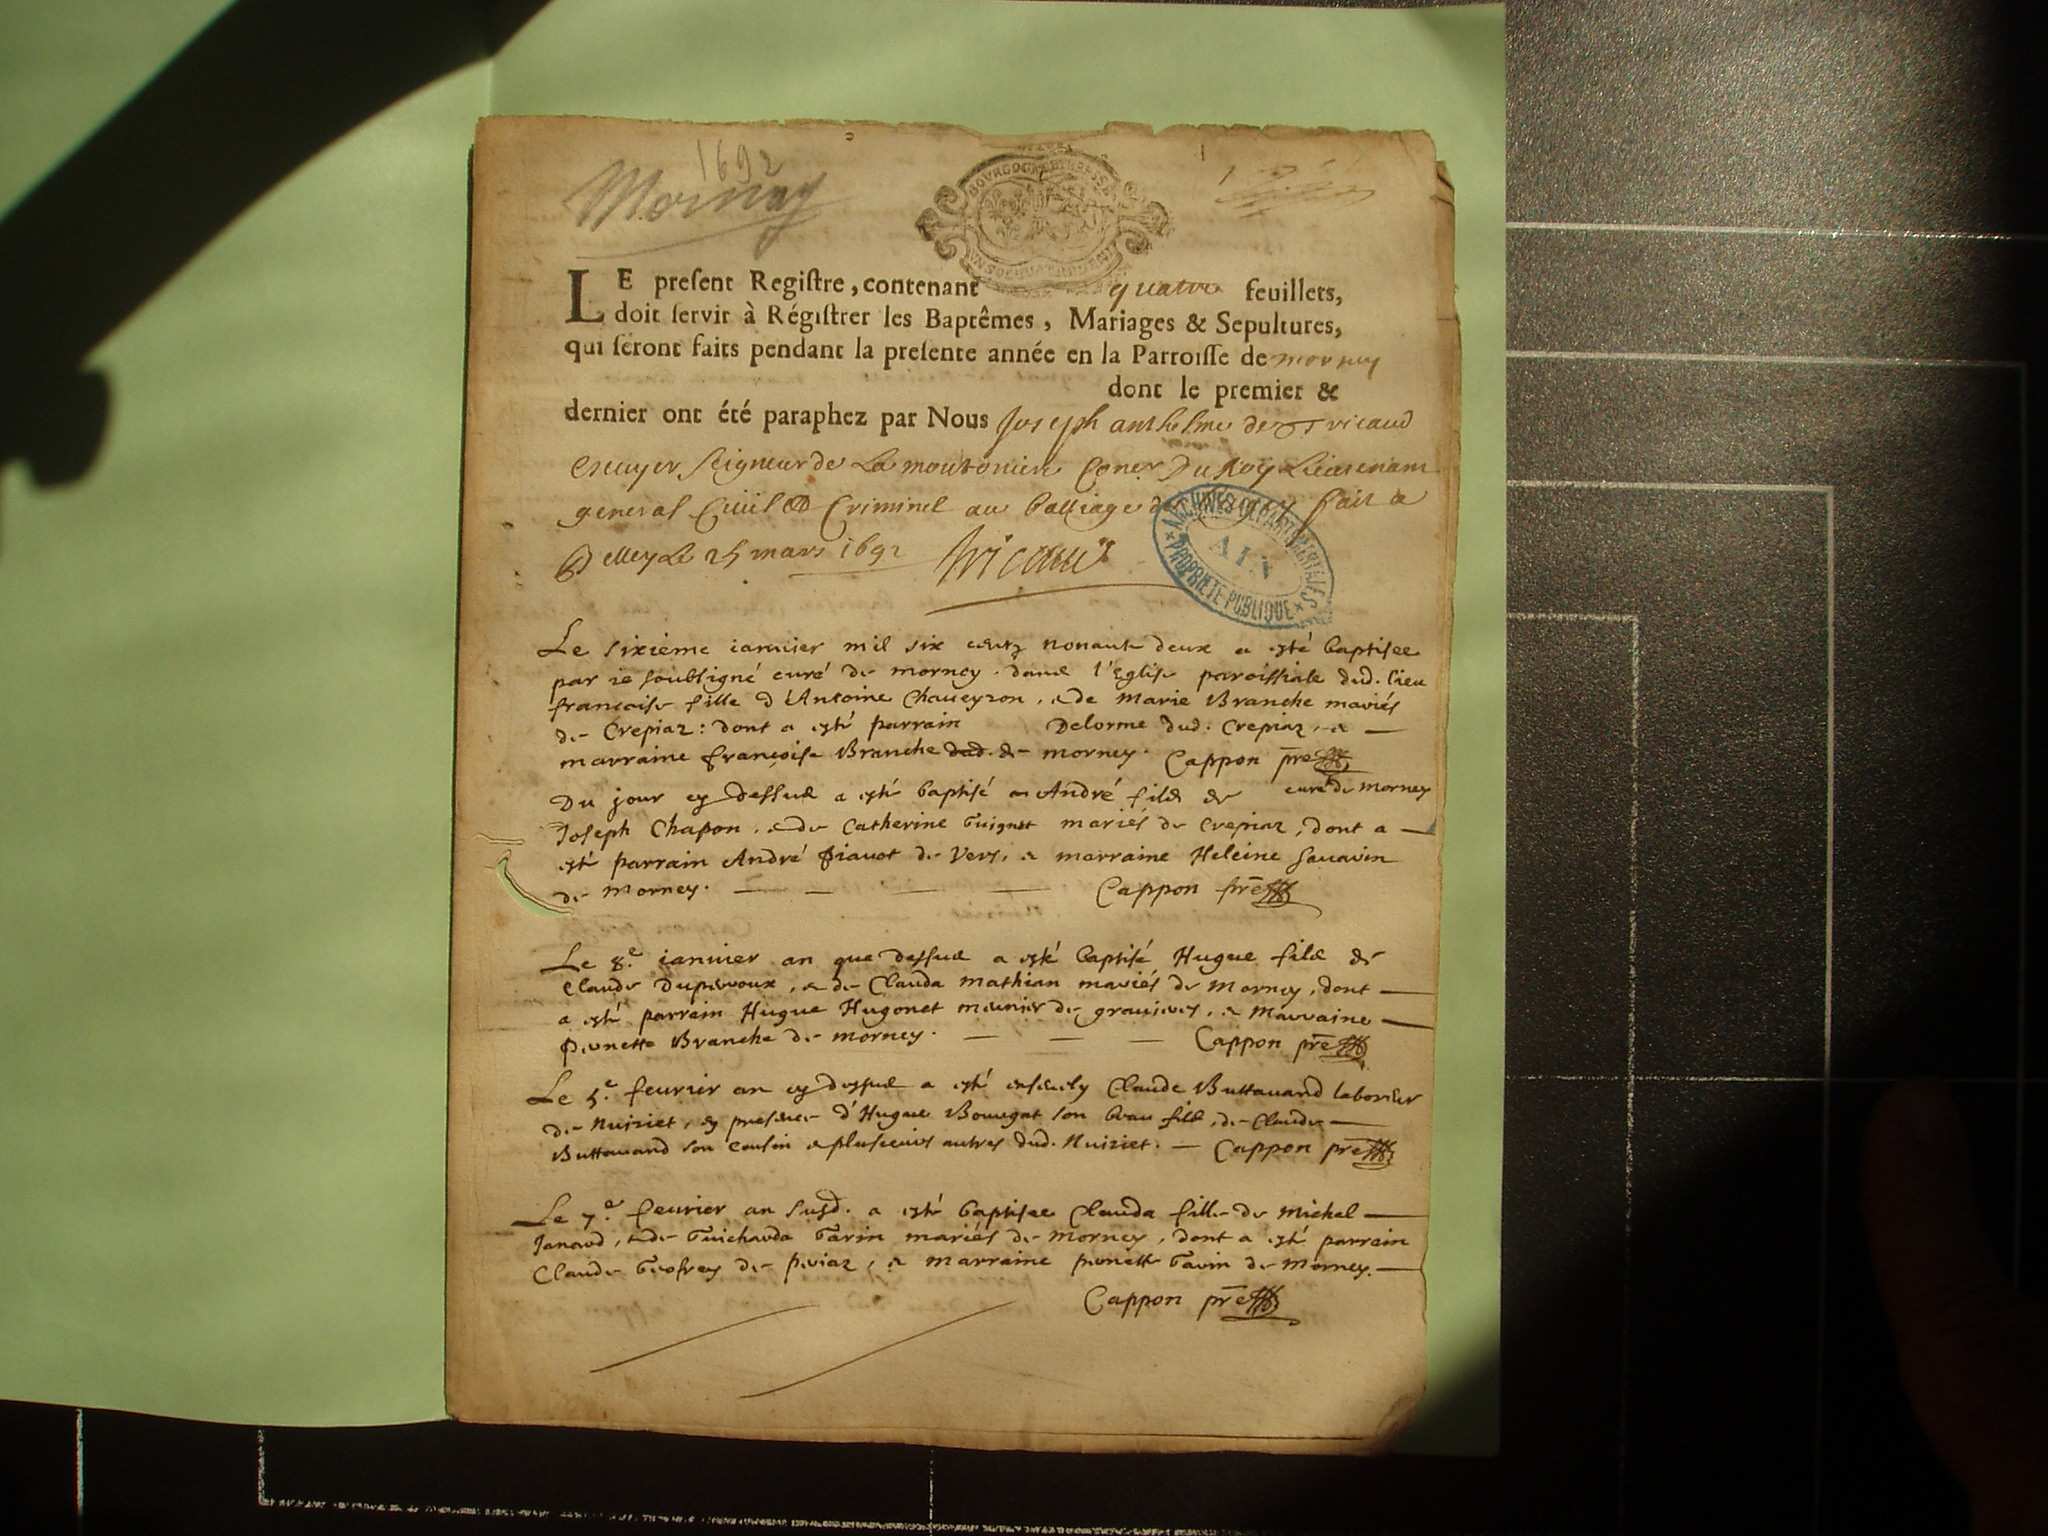 1692
Mornay
LE present Registre, contenant quatre feuillets,
doit servir à Régistrer les Baptêmes, Mariages & Sepultures,
qui seront faits pendant la presente année en la Parroisse de morney
dont le premier &
dernier ont été paraphez par Nous Joseph anthelme de Tricaud
escuyer seigneur de La moutonniere Coner Du Roy Lieutenant
general Civil & Criminel au balliage de fait a
Belley Le 25 mars 1692 Tricaud
ARCHIVES DÉPARTEMENTALES
AIN
PROPRIÉTÉ PUBLIQUE
Le sixieme ianuier mil six centz nonante deux a esté baptisee
par ie soubsigné curé de morney dans l'Eglise paroissiale dud. lieu
francoise fille d'Antoine Chaueyron, & de Marie Branche mariés
de Crepiaz: dont a esté parrain Delorme dud. Crepiaz, &
marraine françoise Branche dud. de morney. Cappon pre
curé de Morney
Du jour cy dessus a esté baptisé André fils de
Joseph Chapon, & de Catherine Guignet mariés de Crepiaz, dont a
esté parrain André Piauot de Vers, & marraine Heleine Sauarin
de Morney. Cappon pre
Le 8.e ianuier an que dessus a esté baptisé Hugue fils de
Claude Duperroux, & de Clauda Mathian mariés de Morney, dont
a esté parrain Hugue Hugonet meunier de grauieres, & Marraine
Pernette Branche de Morney. Cappon pre
Le 5.e feurier an cy dessus a esté enseuely Claude Buttauand laborieur
de Nuiriet, en presence d'Hugue Bouugat son beau fils, de Claude
Buttauand son cousin & plusieurs autres dud. Nuiriet. Cappon pre
Le 7.e feurier an susd. a esté baptisee Clauda fille de Michel
Janaud, & de Guicharda Garin mariés de Morney, dont a esté parrain
Claude Geofray de Periaz, & marraine pernette Garin de Morney.
Cappon pre